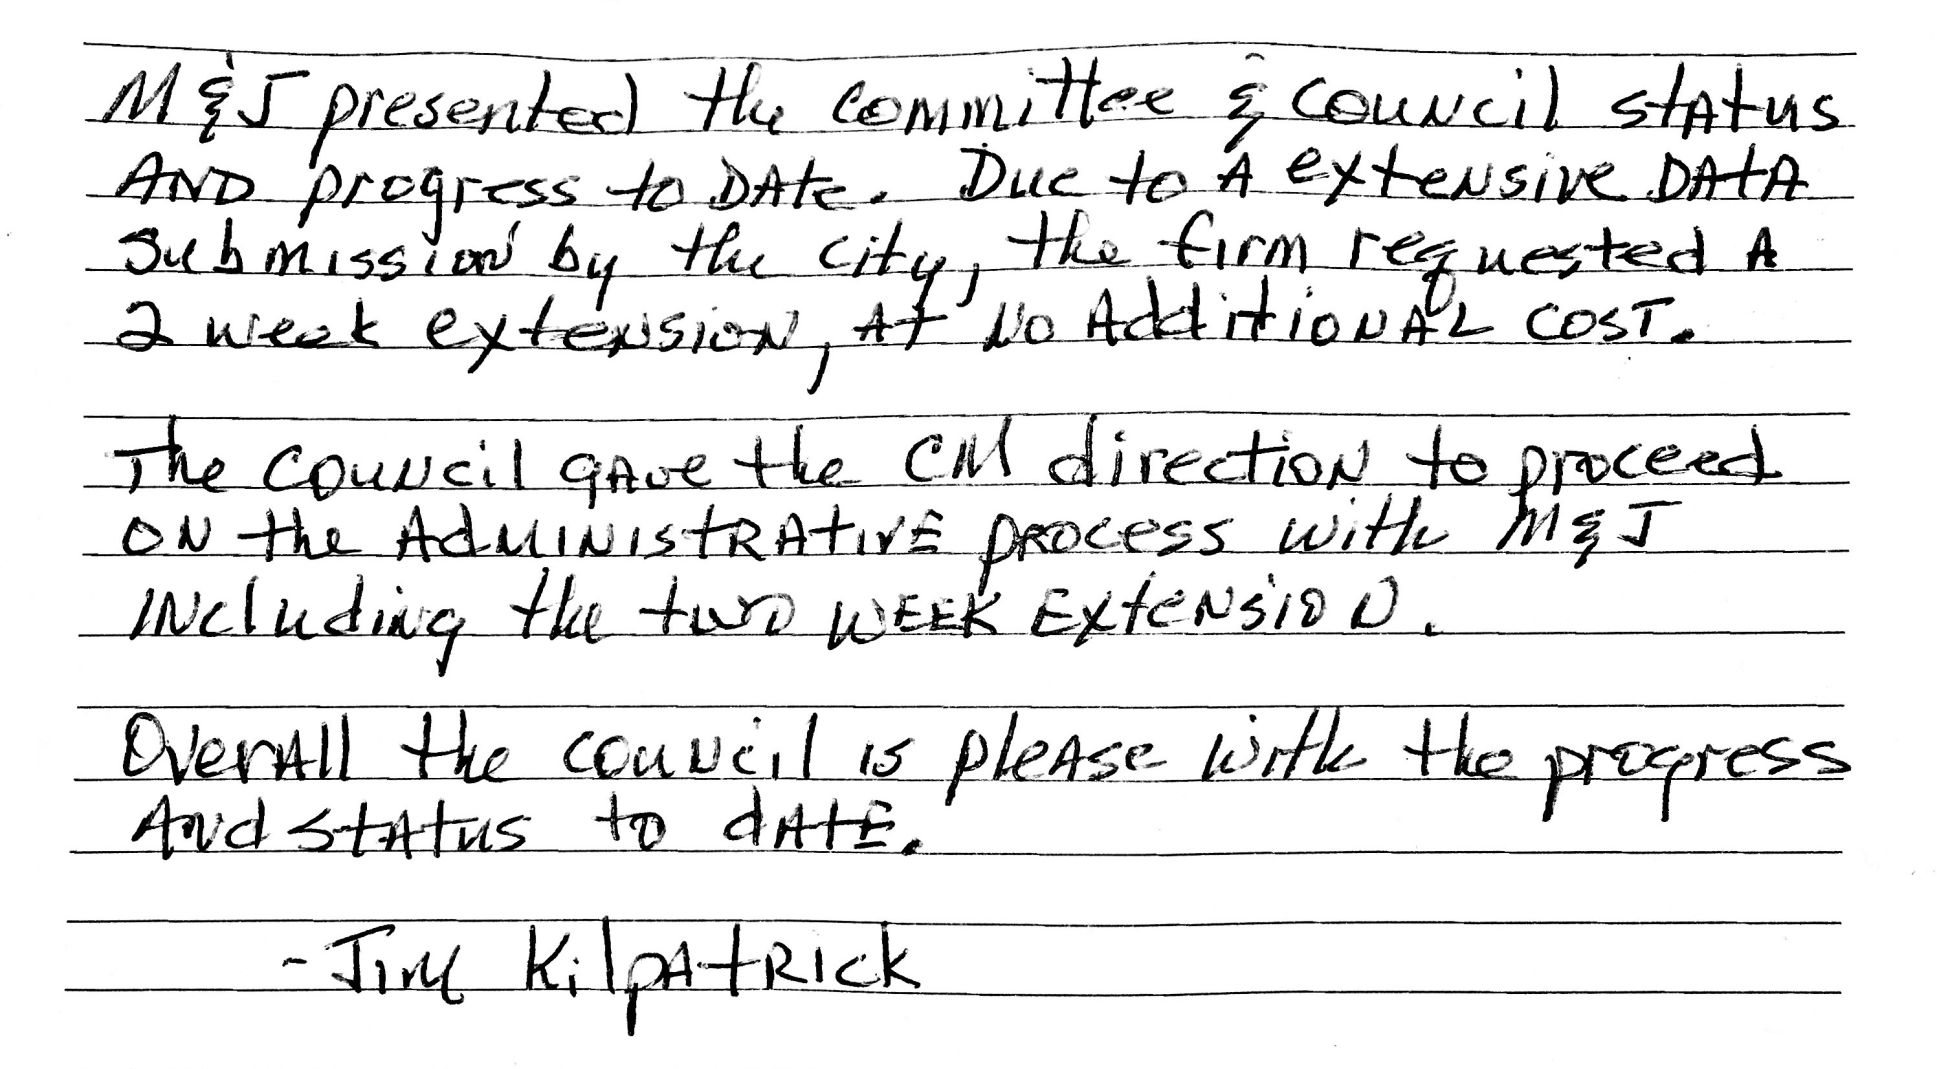 M & J presented the committee & council status
AND progress to DAte. Due to A extensive DATA
submission by the city, the firm requested A
2 week extension, At No AdditioNAL COST.
The COUNcil gAve the CM direction to proceed
ON the AdMINIStRAtivE process with M & J
INcluding the two WEEK ExteNsioN.
OverAll the couNcil is pleAse with the progress
ANd stAtus to dAtE.
- Jim KilpAtRICk